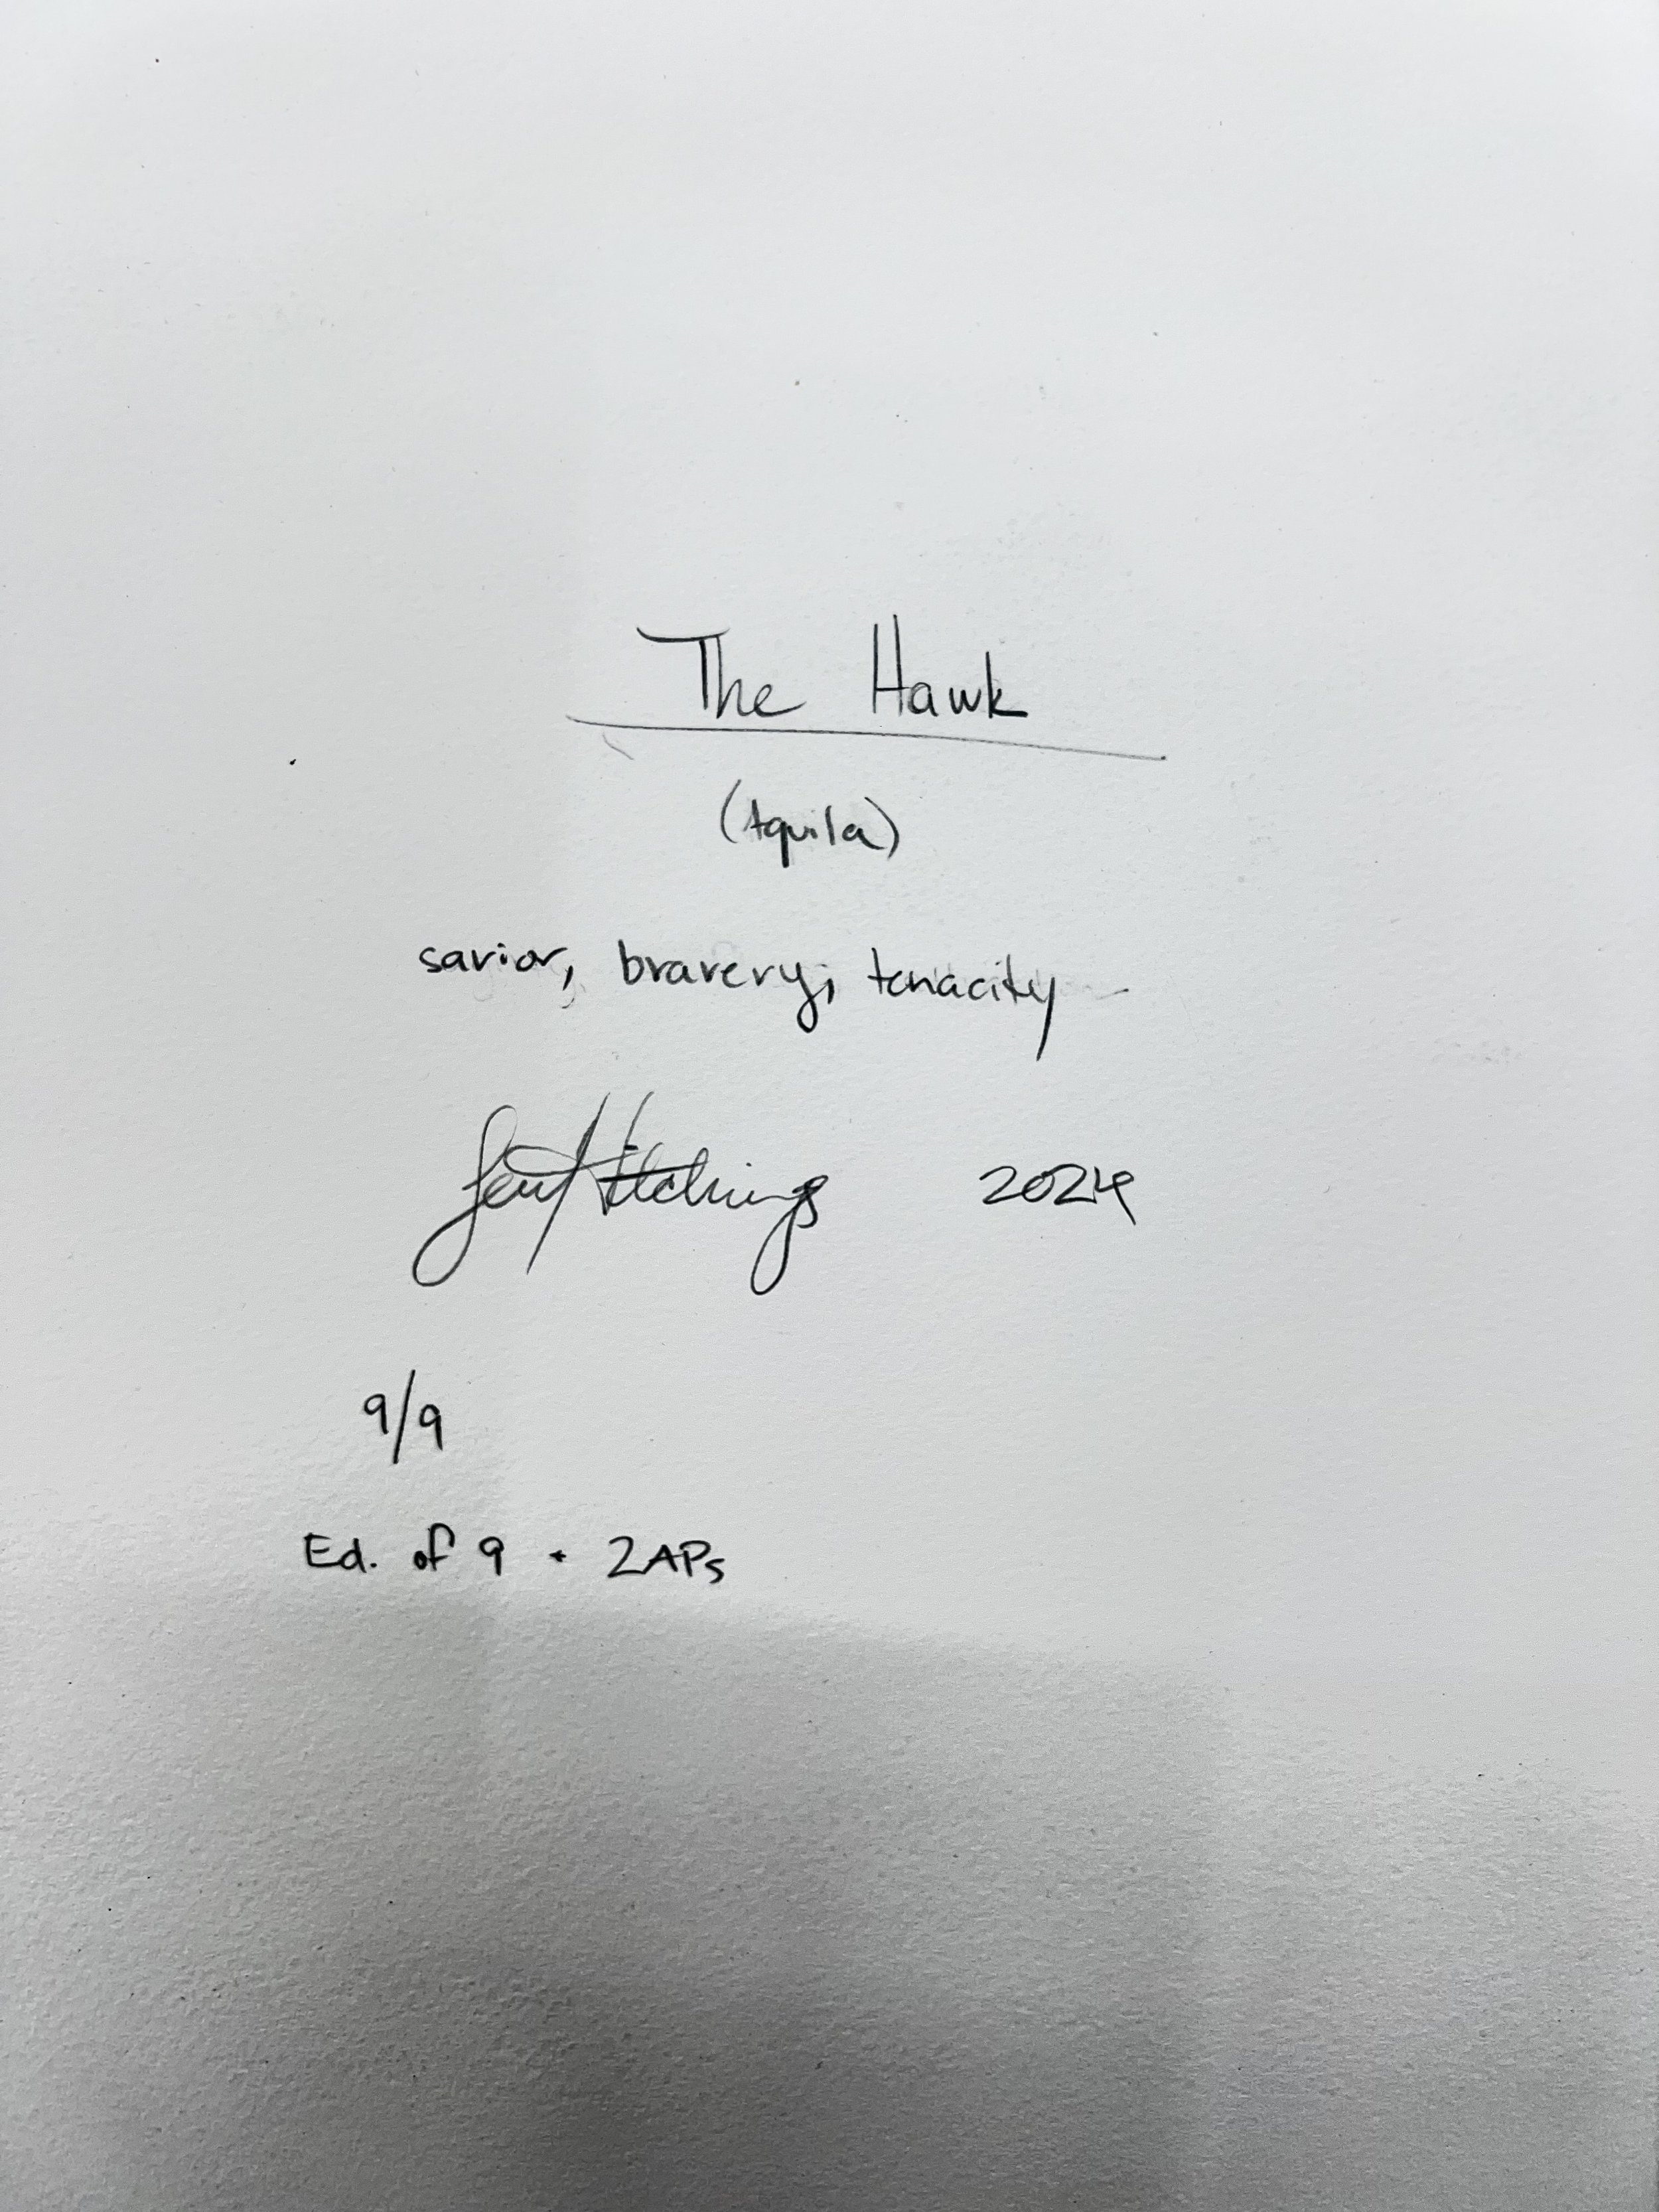 The Hawk
(Aquila)
savior, bravery, tenacity
Hitchings 2024
9/9
Ed. of 9 + 2APs